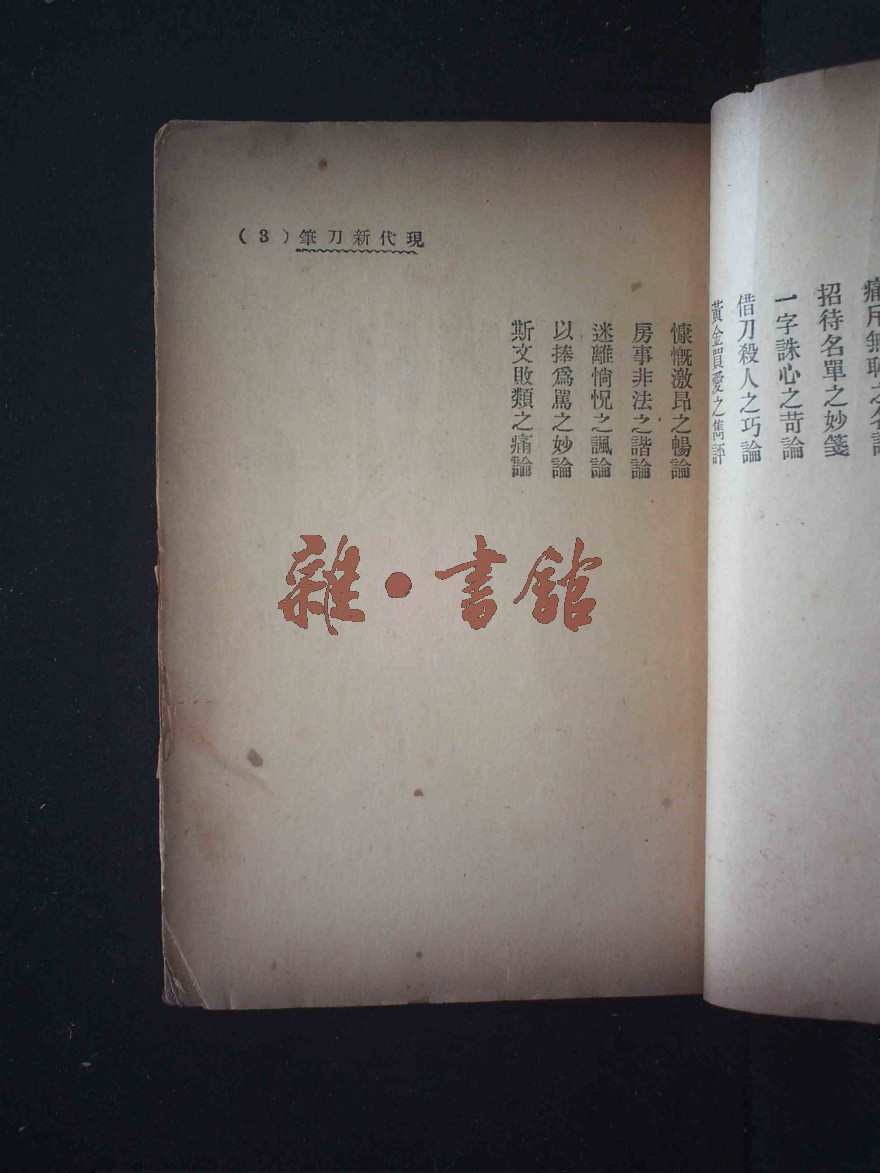 痛斥無恥之名
招待名單之妙箋
一字誅心之苛論
借刀殺人之巧論
黃金買愛之雋評
現代新刀筆 (3)
慷慨激昂之暢論
房事非法之諧論
迷離惝怳之諷論
以捧爲罵之妙論
斯文敗類之痛論
雜·書館